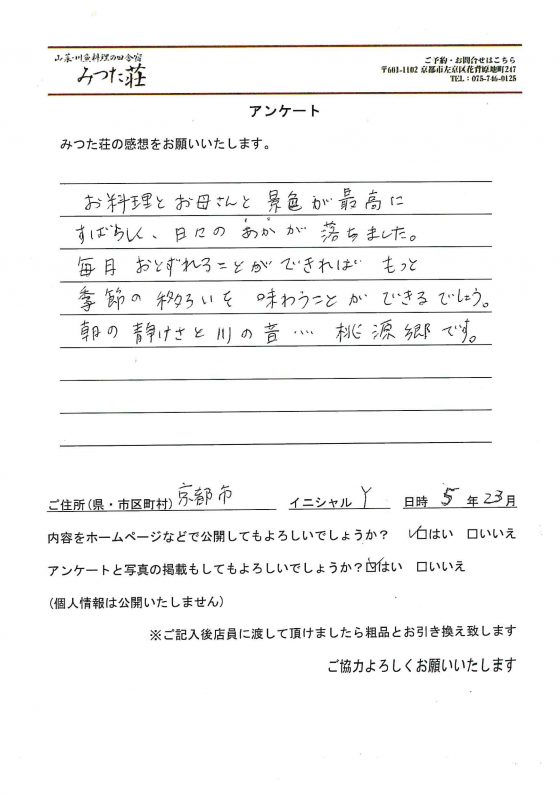 山菜・川魚料理の田舎宿
みつた荘
ご予約・お問合せはこちら
〒601-1102 京都市左京区花背原地町247
TEL:075-746-0125
アンケート
みつた荘の感想をお願いいたします。
お料理とお母さんと景色が最高に
すばらしく、日々のあかが落ちました。
毎月おとずれることができればもっと
季節の移ろいを味わうことができるでしょう。
朝の静けさと川の音…… 桃源郷です。
ご住所(県・市区町村) 京都市 イニシャル Y 日時 5 年 23 月
内容をホームページなどで公開してもよろしいでしょうか? ☑はい □いいえ
アンケートと写真の掲載もしてもよろしいでしょうか? ☑はい □いいえ
(個人情報は公開いたしません)
※ご記入後店員に渡して頂けましたら粗品とお引き換え致します
ご協力よろしくお願いいたします